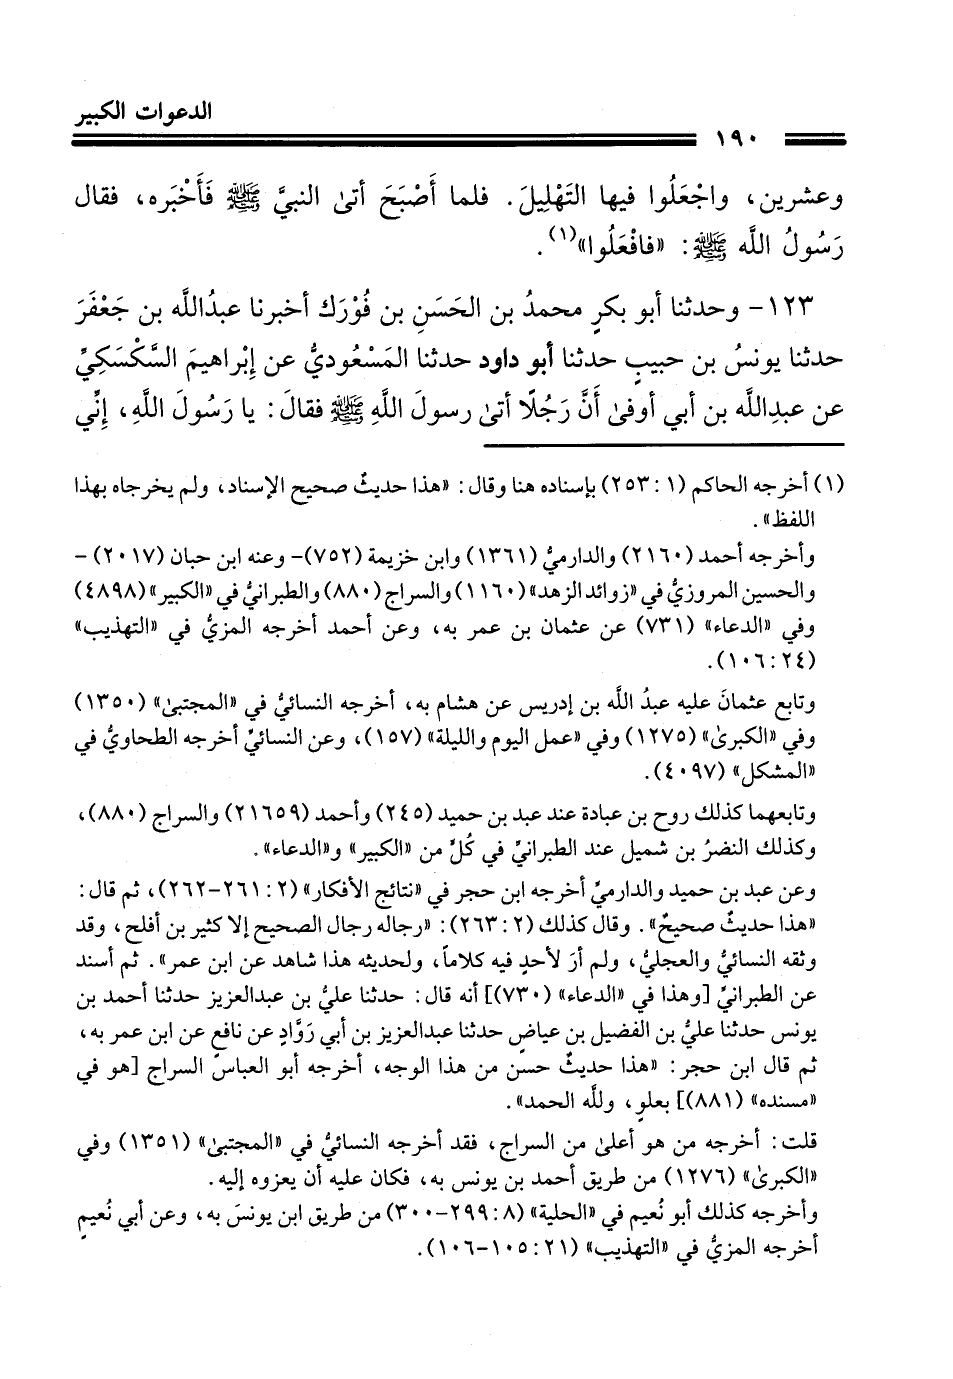 الدعوات الكبير
١٩٠
وعشرين، واجْعَلُوا فيها التَهْلِيلَ. فلما أَصْبَحَ أتىٰ النبيَّ ﷺ فَأَخْبَره، فقال
رَسُولُ اللَّه ﷺ: «فافْعَلُوا»(١).
١٢٣- وحدثنا أبو بكرٍ محمدُ بن الحَسَنِ بن فُوْرَك أخبرنا عبدُاللَّه بن جَعْفَرَ
حدثنا يونسُ بن حبيبٍ حدثنا أبو داود حدثنا المَسْعُوديُّ عن إِبْراهيمَ السَّكْسَكِيِّ
عن عبدِاللَّه بن أبي أوفىٰ أَنَّ رَجُلًا أتىٰ رسولَ اللَّهِ ﷺ فقالَ: يا رَسُولَ اللَّهِ، إِنِّي
(١) أخرجه الحاكم (١: ٢٥٣) بإسناده هنا وقال: «هذا حديثٌ صحيح الإسناد، ولم يخرجاه بهذا
اللفظ».
وأخرجه أحمد (٢١٦٠) والدارميُّ (١٣٦١) وابن خزيمة (٧٥٢)- وعنه ابن حبان (٢٠١٧) -
والحسين المروزيُّ في «زوائد الزهد» (١١٦٠) والسراج (٨٨٠) والطبرانيُّ في «الكبير» (٤٨٩٨)
وفي «الدعاء» (٧٣١) عن عثمان بن عمر به، وعن أحمد أخرجه المزيُّ في «التهذيب»
(٢٤: ١٠٦).
وتابع عثمانَ عليه عبدُ اللَّه بن إدريس عن هشام به، أخرجه النسائيُّ في «المجتبىٰ» (١٣٥٠)
وفي «الكبرىٰ» (١٢٧٥) وفي «عمل اليوم والليلة» (١٥٧)، وعن النسائيِّ أخرجه الطحاويُّ في
«المشكل» (٤٠٩٧).
وتابعهما كذلك روح بن عبادة عند عبد بن حميد (٢٤٥) وأحمد (٢١٦٥٩) والسراج (٨٨٠)،
وكذلك النضرُ بن شميل عند الطبرانيِّ في كُلِّ من «الكبير» و«الدعاء».
وعن عبد بن حميد والدارميِّ أخرجه ابن حجر في «نتائج الأفكار» (٢: ٢٦١-٢٦٢)، ثم قال:
«هذا حديثٌ صحيحٌ». وقال كذلك (٢: ٢٦٣): «رجاله رجال الصحيح إلا كثير بن أفلح، وقد
وثقه النسائيُّ والعجليُّ، ولم أرَ لأحدٍ فيه كلاماً، ولحديثه هذا شاهد عن ابن عمر». ثم أسند
عن الطبرانيِّ [وهذا في «الدعاء» (٧٣٠)] أنه قال: حدثنا عليُّ بن عبدالعزيز حدثنا أحمد بن
يونس حدثنا عليُّ بن الفضيل بن عياضٍ حدثنا عبدالعزيز بن أبي رَوَّادٍ عن نافعٍ عن ابن عمر به،
ثم قال ابن حجر: «هذا حديثٌ حسن من هذا الوجه، أخرجه أبو العباس السراج [هو في
«مسنده» (٨٨١)] بعلوٍ، وللَّه الحمد».
قلت: أخرجه من هو أعلىٰ من السراج، فقد أخرجه النسائيُّ في «المجتبىٰ» (١٣٥١) وفي
«الكبرىٰ» (١٢٧٦) من طريق أحمد بن يونس به، فكان عليه أن يعزوه إليه.
وأخرجه كذلك أبو نُعيم في «الحلية» (٨: ٢٩٩-٣٠٠) من طريق ابن يونسَ به، وعن أبي نُعيمٍ
أخرجه المزيُّ في «التهذيب» (٢١: ١٠٥-١٠٦).